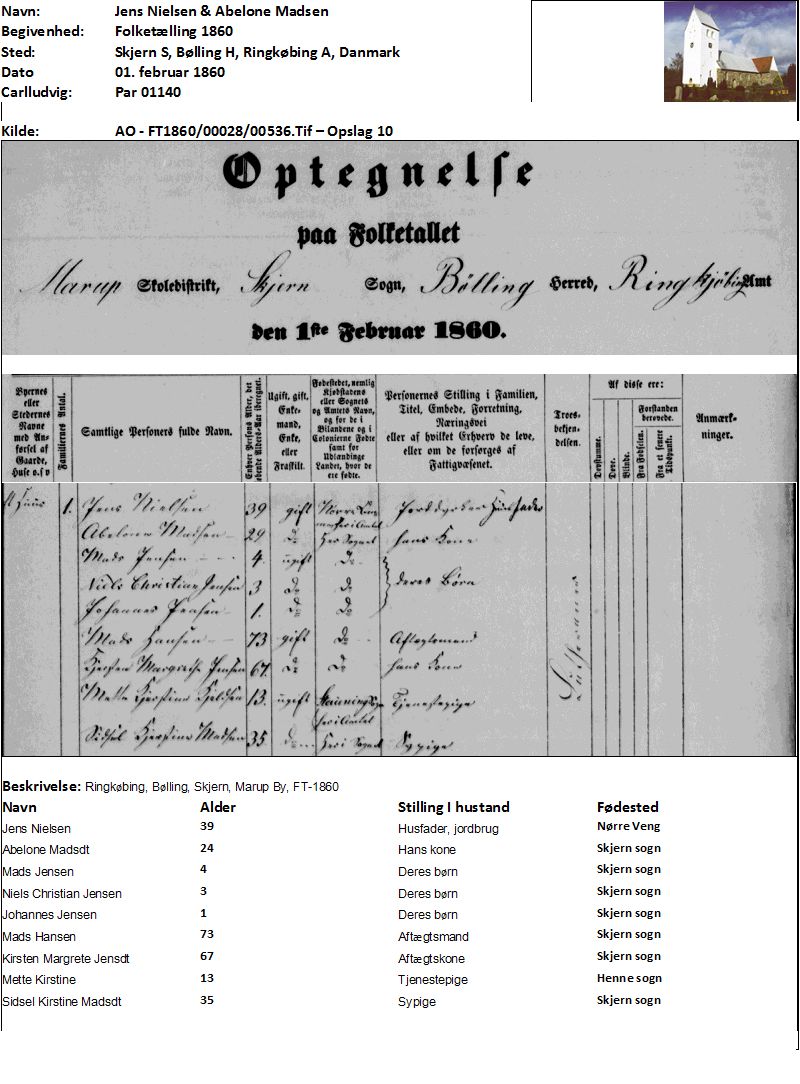 Navn: Jens Nielsen & Abelone Madsen
Begivenhed: Folketælling 1860
Sted: Skjern S, Bølling H, Ringkøbing A, Danmark
Dato 01. februar 1860
Carlludvig: Par 01140
Kilde: AO - FT1860/00028/00536.Tif – Opslag 10
Optegnelse
paa Folketallet
Marup Skoledistrikt, Skjern Sogn, Bölling Herred, Ringkjöbing Amt
den 1ste Februar 1860.
Byernes eller Stedernes Navne med Anførsel af Gaarde, Huse o.s.v
Familiernes Antal.
Samtlige Personers fulde Navn.
Enhver Persons Alder, det løbende Alders-Aar iberegnet.
Ugift, gift, Enkemand, Enke, eller Fraskilt.
Fødestedet, nemlig Kjøbstadens eller Sognets og Amtets Navn, og for de i Bilandene og i Colonierne Fødte samt for Udlændinge Landet, hvor de ere fødte.
Personernes Stilling i Familien, Titel, Embede, Forretning, Næringsvei eller af hvilket Erhverv de leve, eller om de forsørges af Fattigvæsenet.
Troesbekjendelsen.
Af disse ere:
Døvstumme.
Døve.
Blinde.
Forstanden berøvede.
Fra Fødselen.
Fra et senere Tidspunkt.
Anmærkninger.
Huus 1. Jens Nielsen 39 gift Nörre Jorddyrker Huusfader
Abelone Madsen 29 do Her i Sognet hans Kone
Mads Jensen 4. ugift do
Niels Christian Jensen 3 do do deres Börn
Johannes Jensen 1. do do
Mads Hansen 73 gift do Aftægtsmand
Kjersten Margrethe Jensen 67. do do hans Kone
Mette Kjerstine 13. ugift Tjenestepige
her i Amtet
Sidsel Kjerstine Madsen 35 do Her i Sognet Sypige
Beskrivelse: Ringkøbing, Bølling, Skjern, Marup By, FT-1860
Navn Alder Stilling I hustand Fødested
Jens Nielsen 39 Husfader, jordbrug Nørre Veng
Abelone Madsdt 24 Hans kone Skjern sogn
Mads Jensen 4 Deres børn Skjern sogn
Niels Christian Jensen 3 Deres børn Skjern sogn
Johannes Jensen 1 Deres børn Skjern sogn
Mads Hansen 73 Aftægtsmand Skjern sogn
Kirsten Margrete Jensdt 67 Aftægtskone Skjern sogn
Mette Kirstine 13 Tjenestepige Henne sogn
Sidsel Kirstine Madsdt 35 Sypige Skjern sogn